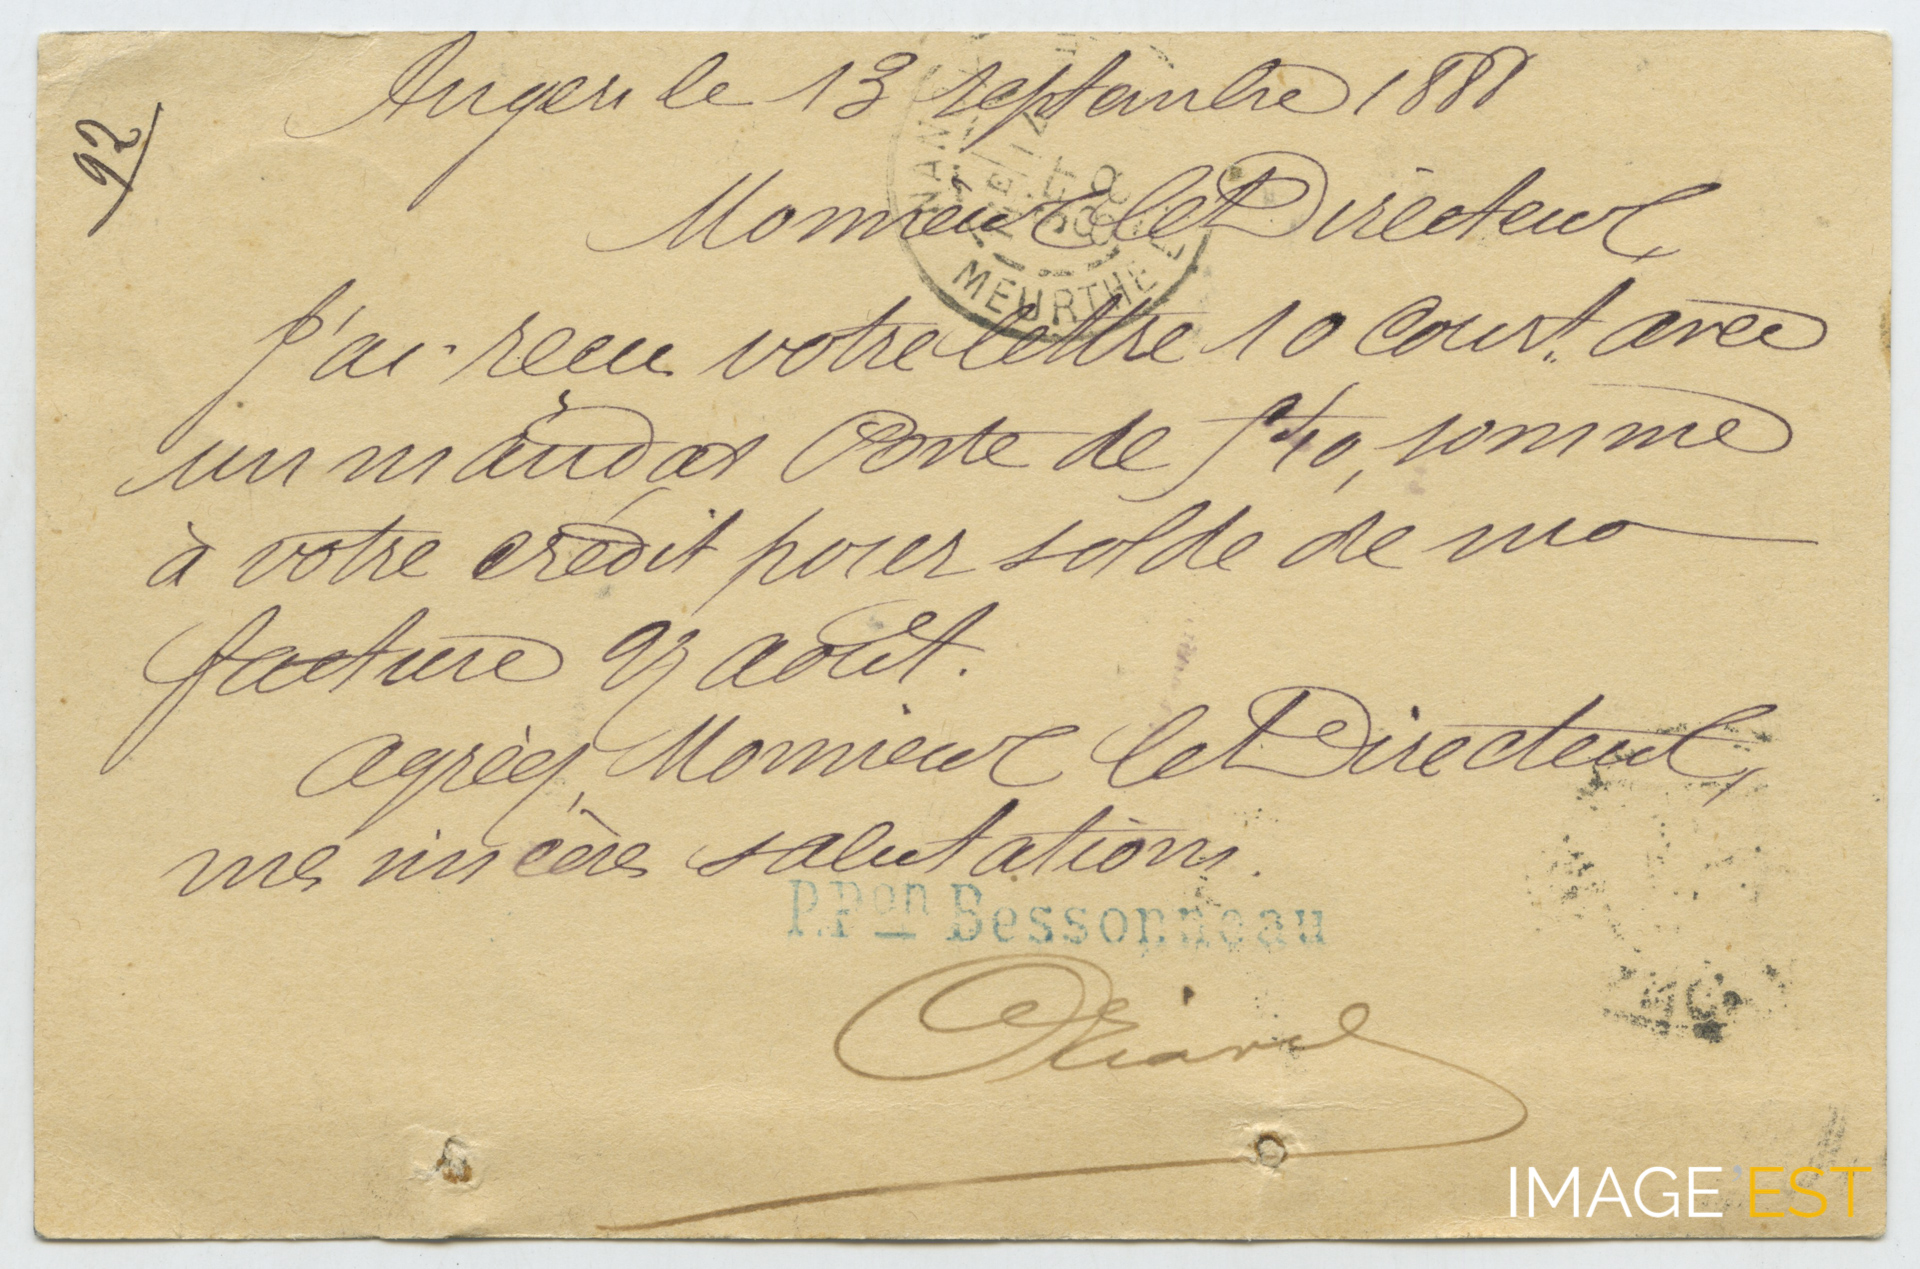 92
Angers le 13 septembre 1888
Monsieur le Directeur,
J'ai reçu votre lettre 10 Cour.t avec
un mandat Poste de
somme
à votre crédit pour solde de ma
facture août.
agréez, Monsieur le Directeur,
mes sincères salutations.
P.Pon Bessonneau
NANCY
MEURTHE
IMAGE'EST